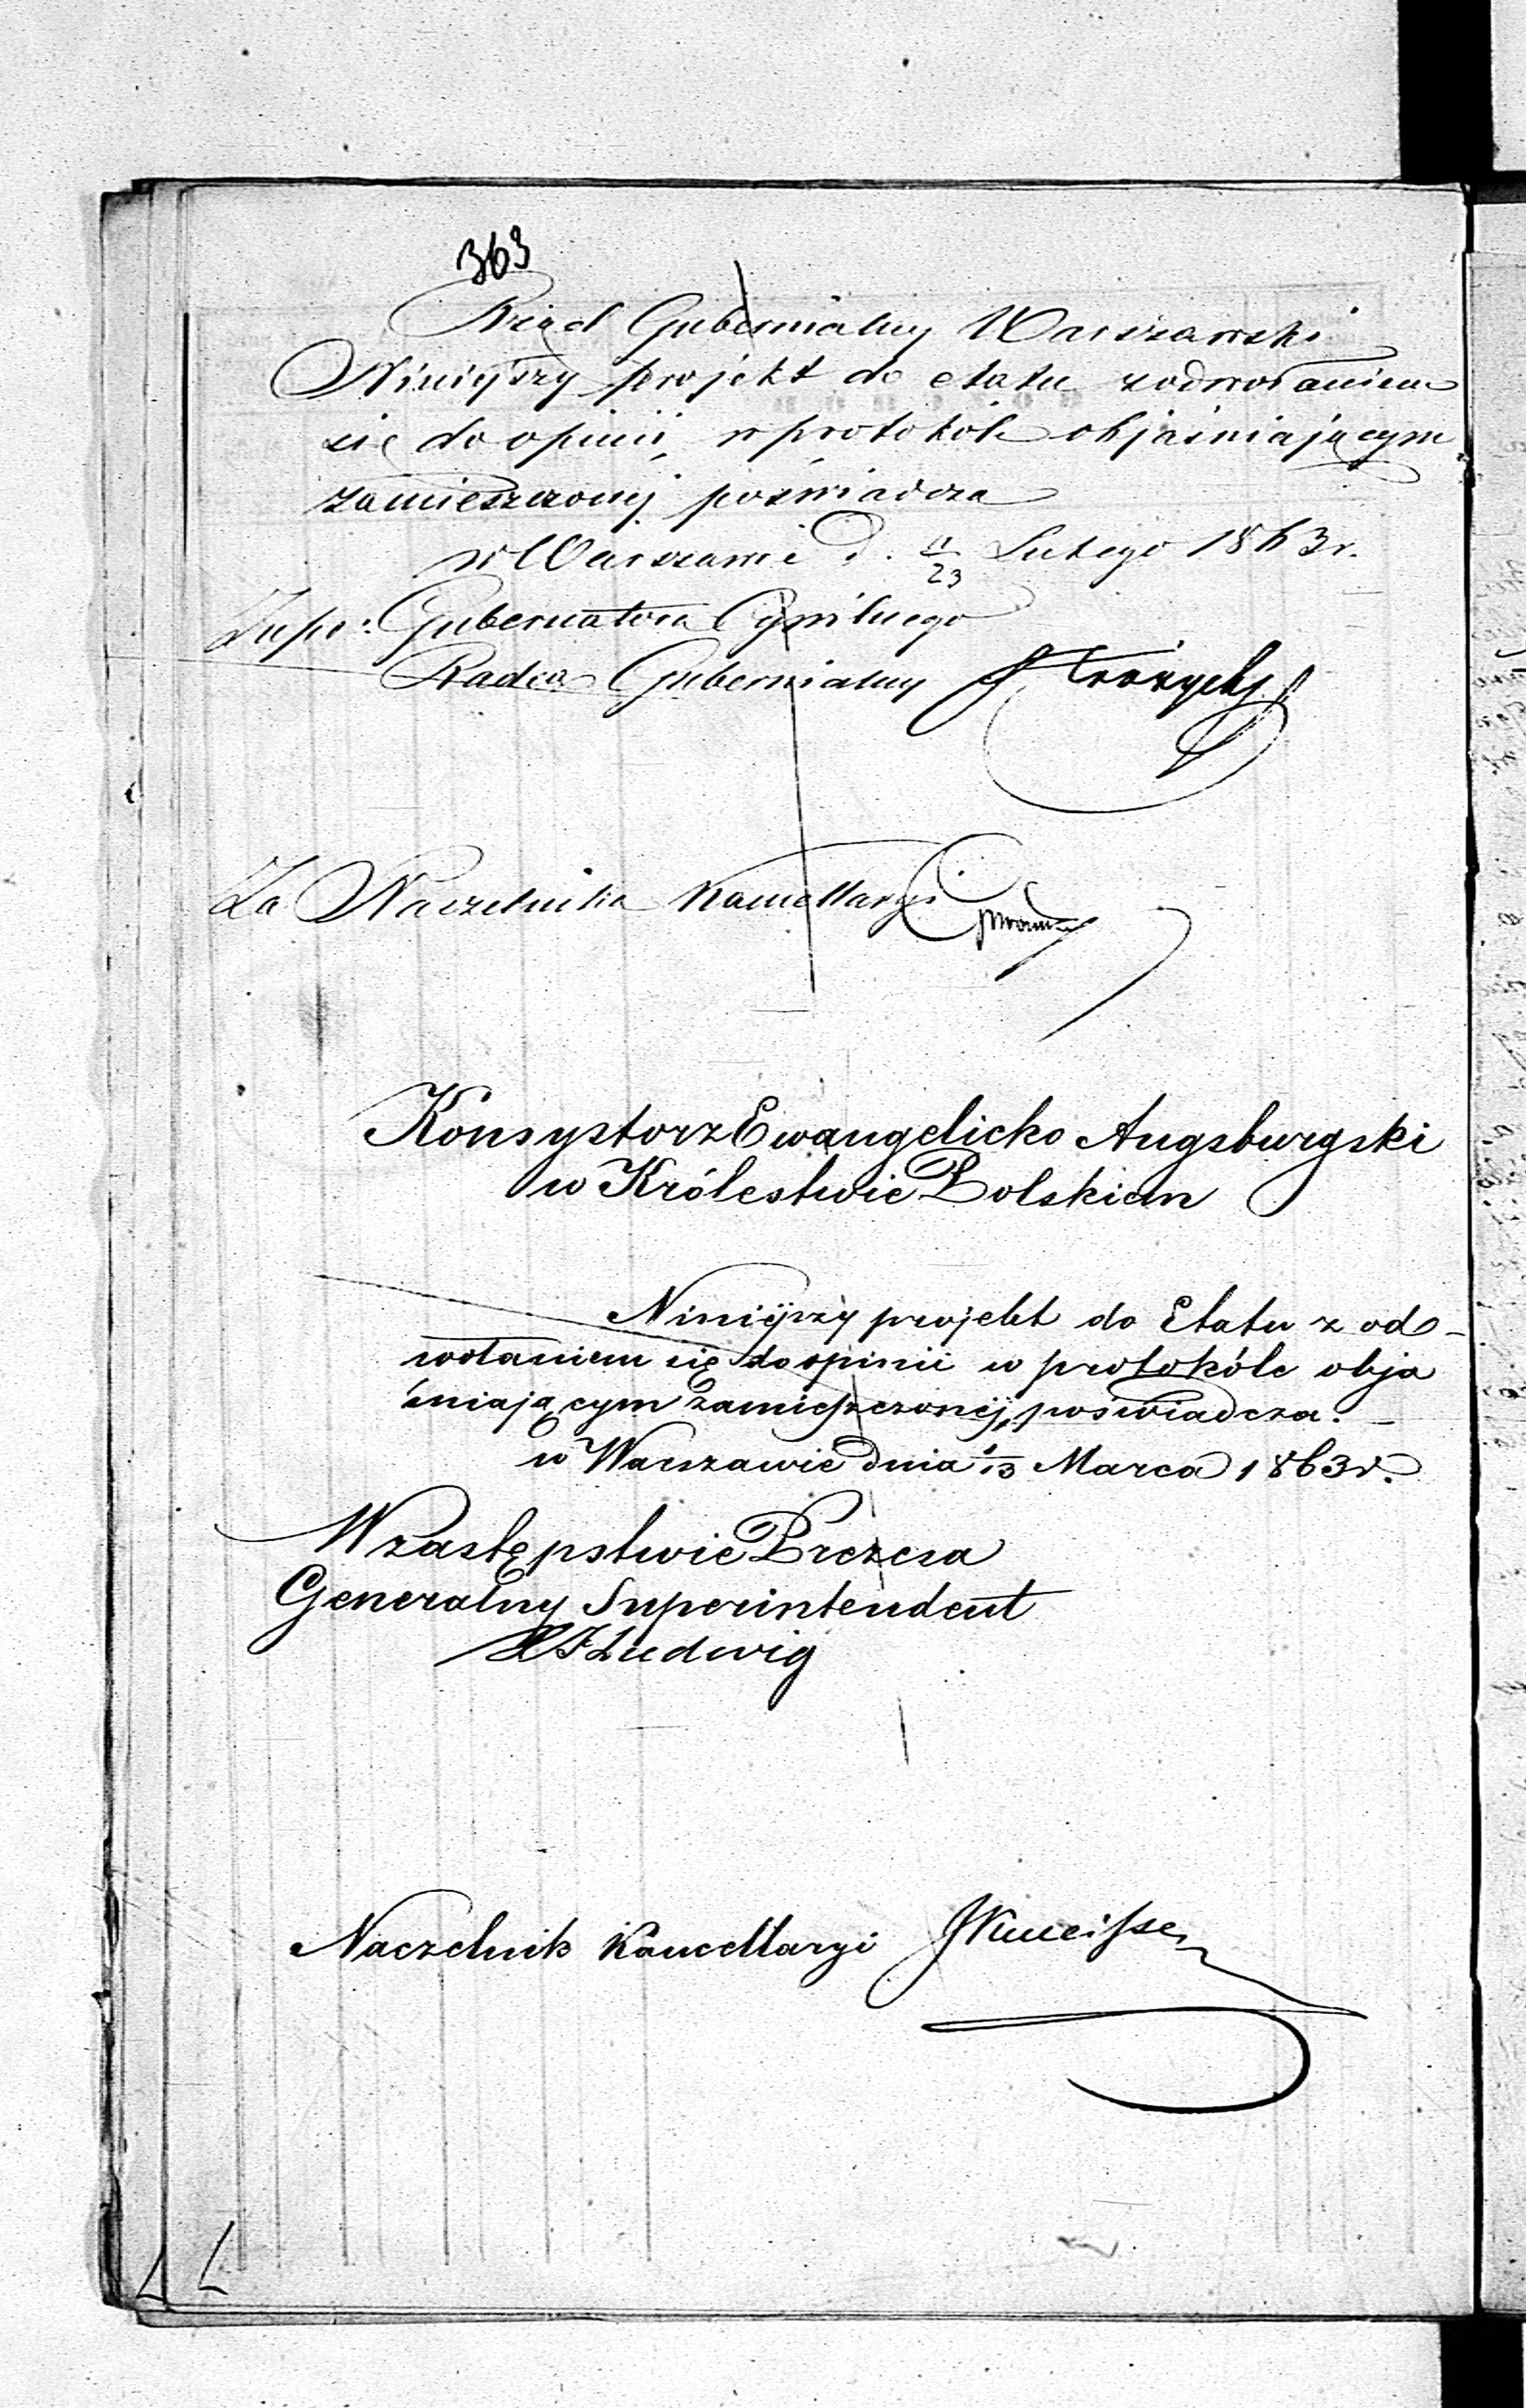 363
Rząd Gubernialny Warszawski
Niniejszy projekt do etatu z odwołaniem
się do opinii, w protokóle objaśniającym
zamieszczonej poświadcza
w Warszawie d. 11/23 Lutego 1863 r.
Gubernatora Cywilnego
Radca Gubernialny
Za Naczelnika Kancellaryi
Konsystorz Ewangelicko Augsburgski
w Królestwie Polskiem
Niniejszy projekt do Etatu z od-
wołaniem się do opinii w protokóle obja
śniającym zamieszczonej, poświadcza. –
w Warszawie dnia 1/13 Marca 1863 r.
W zastępstwie Prezesa
Generalny Superintendent
Ludwig
Naczelnik Kancellaryi